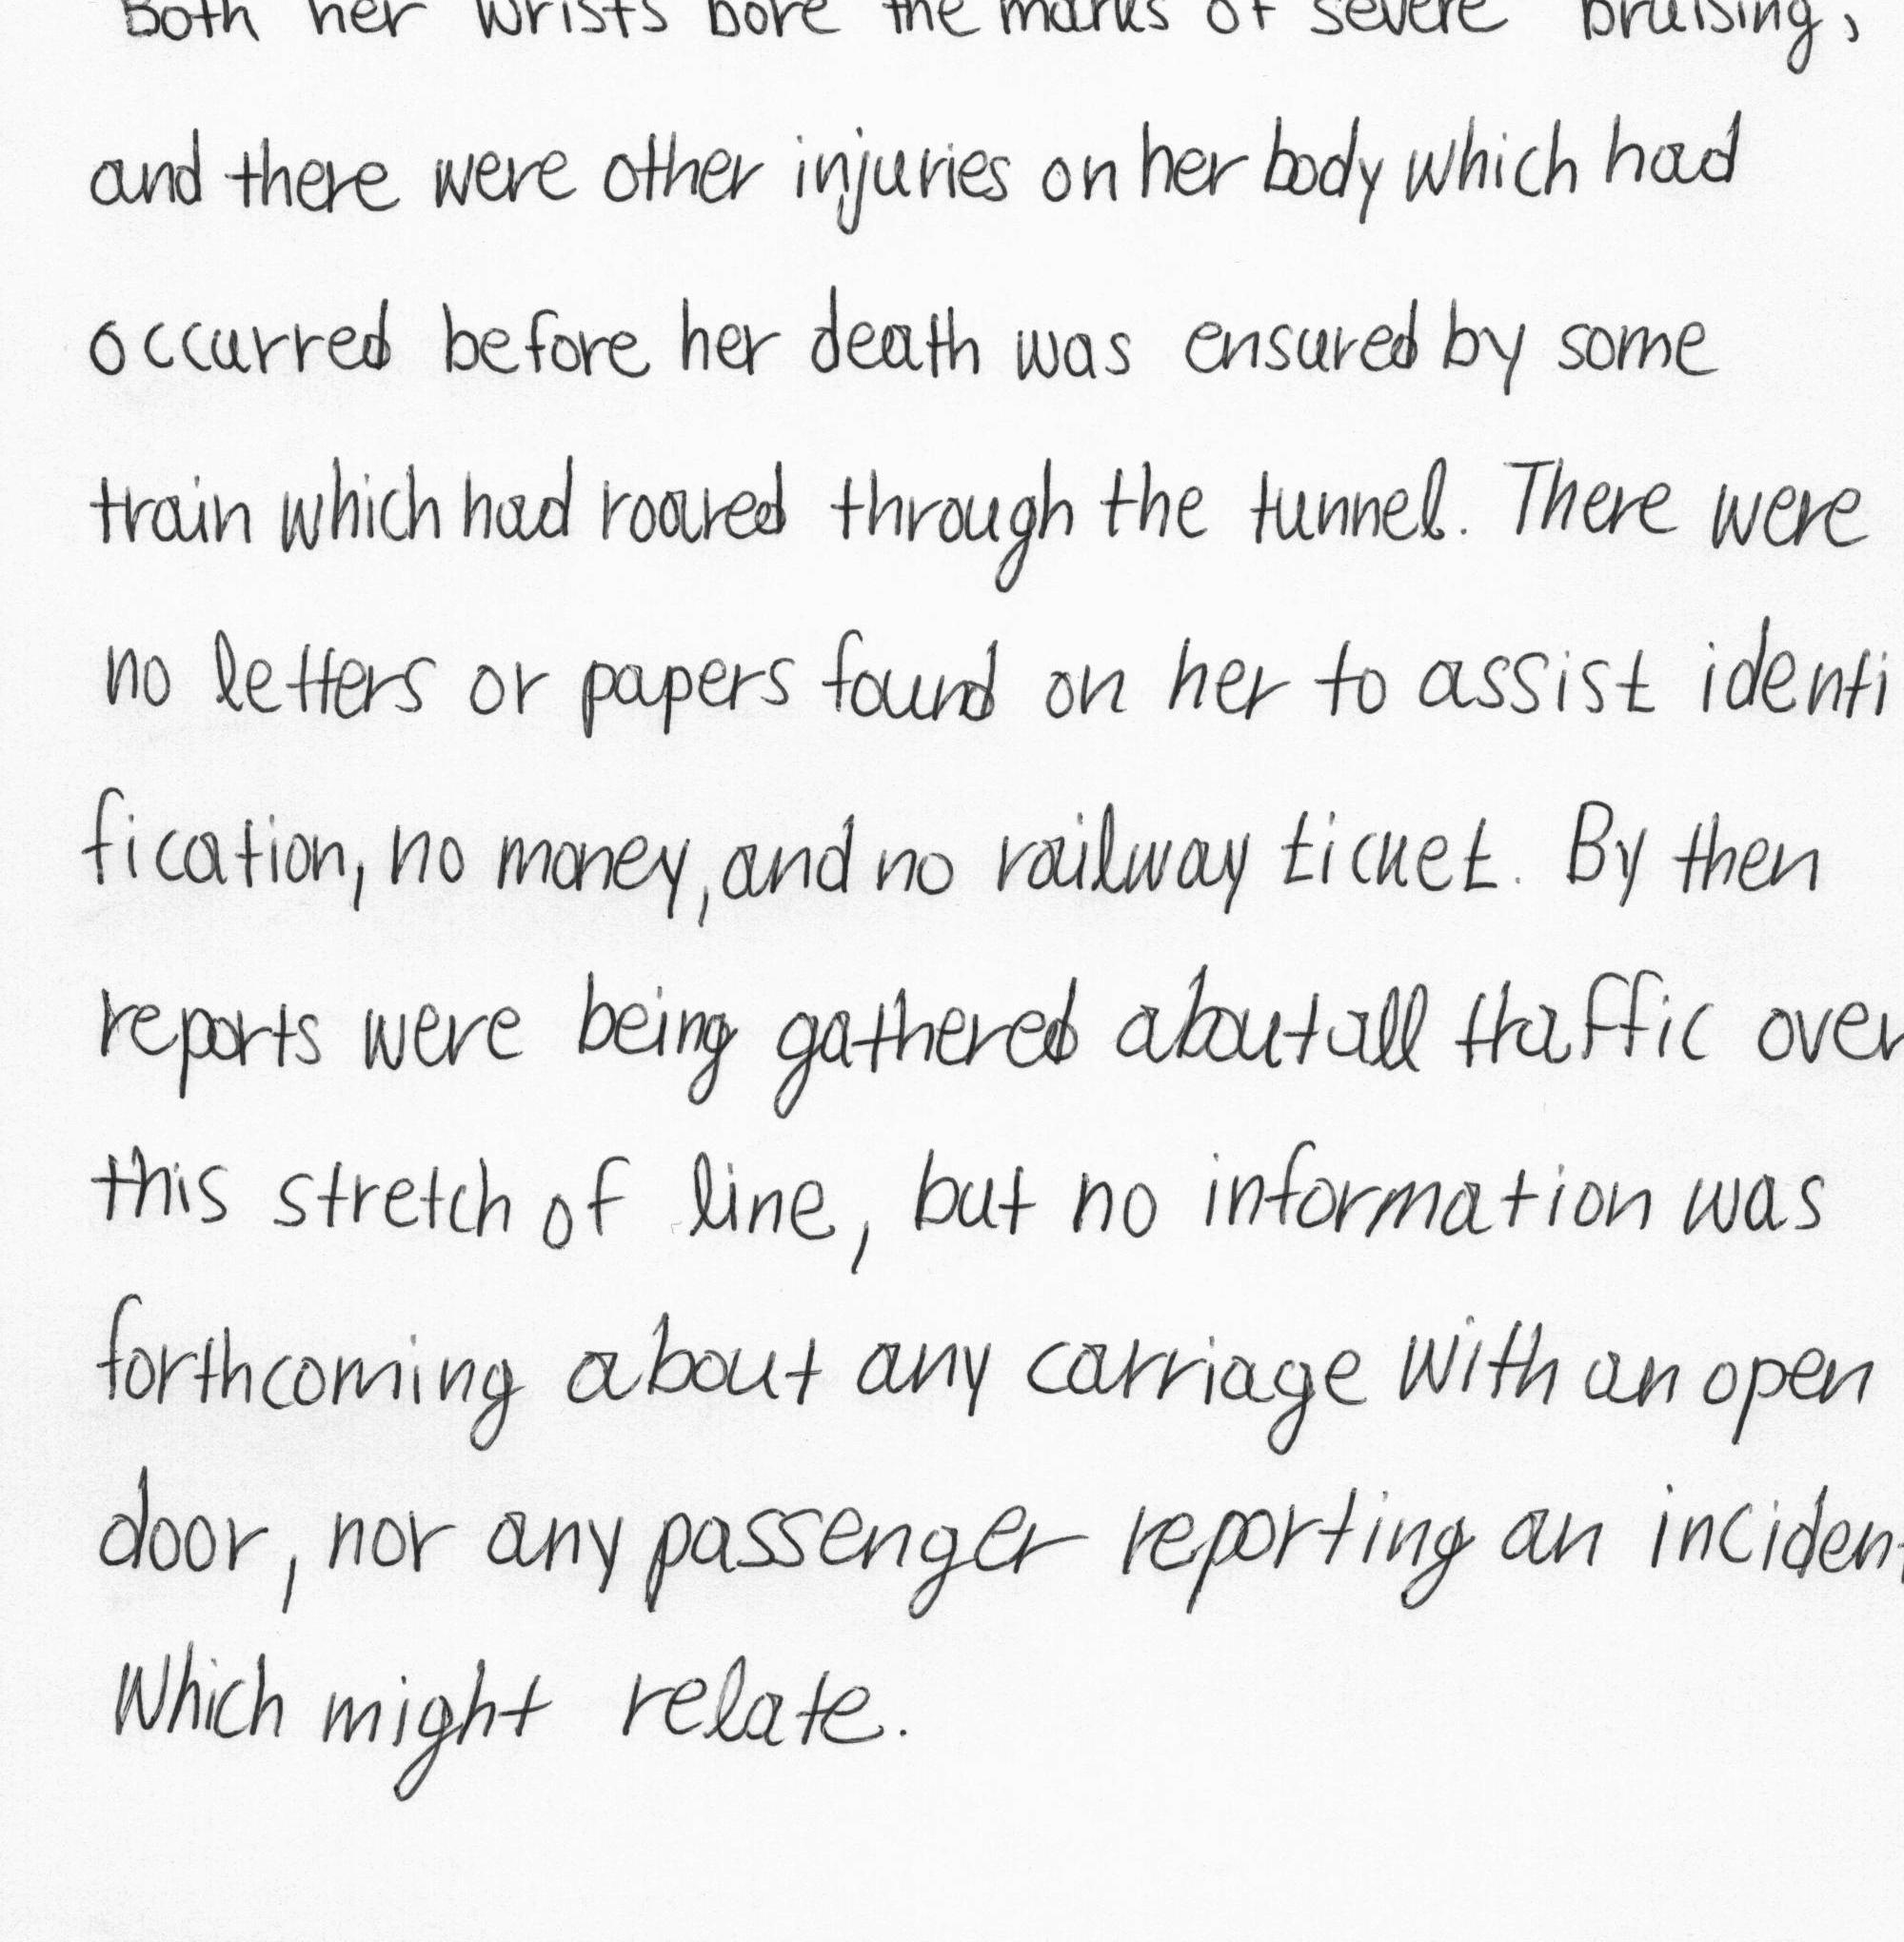 Both her wrists bore the marks of severe bruising,
and there were other injuries on her body which had
occurred before her death was ensured by some
train which had roared through the tunnel. There were
no letters or papers found on her to assist identi
fication, no money, and no railway ticket. By then
reports were being gathered about all traffic over
this stretch of line, but no information was
forthcoming about any carriage with an open
door, nor any passenger reporting an incident
Which might relate.